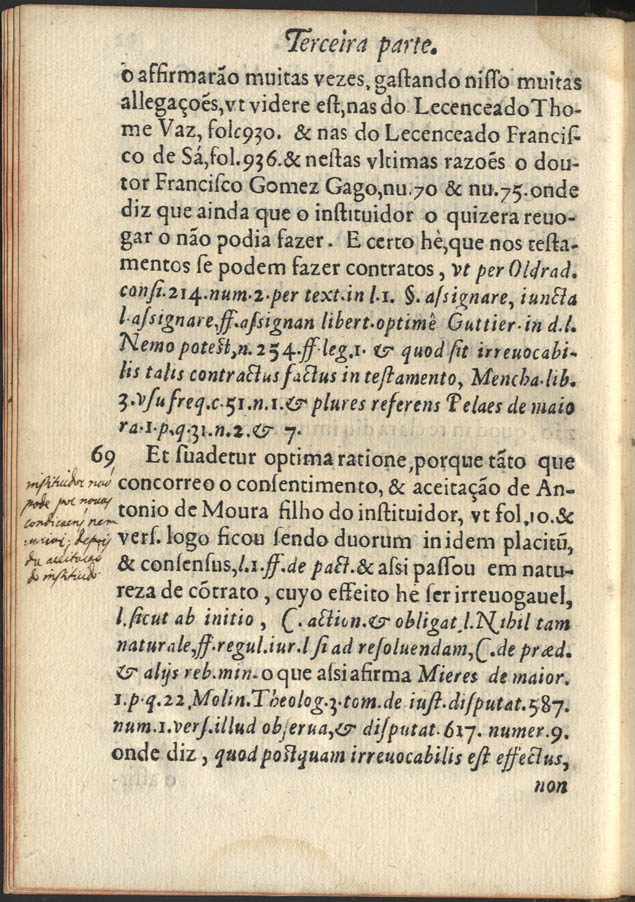 Terceira parte.
o affirmarão muitas vezes, gaſtando niſſo muitas
allegaçoẽs,vt videre eſt,nas do Lecenceado Tho-
me Vaz, folc930. & nas do Lecenceado Franciſ-
co de Sá,fol.936.& neſtas vltimas razoẽs o dou-
tor Franciſco Gomez Gago,nu.70 & nu.75.onde
diz que ainda que o inſtituidor o quizera reuo-
gar o não podia fazer. E certo hè,que nos teſta-
mentos ſe podem fazer contratos, vt per Oldrad.
conſi.214.num.2.per text.in l.1. §. aſsignare, iuncta
l.aſsignare,ff.aſsignan libert.optimê Guttier.in d.l.
Nemo poteſt,n.254.ff.leg.1. & quod ſit irreuocabi-
lis talis contractus factus in teſtamento, Mencha.lib.
3.vſu freq.c.51.n.1.& plures referens Pelaes de maio
ra.1.p.q.31.n.2.& 7.
69 Et ſuadetur optima ratione,porque tãto que
concorreo o conſentimento, & aceitação de An-
tonio de Moura filho do inſtituidor, vt fol.10.&
verſ. logo ficou ſendo duorum in idem placitũ,
& conſenſus,l.1.ff.de pact.& aſsi paſſou em natu-
reza de cõtrato, cuyo effeito he ſer irreuogauel,
l.ſicut ab initio, C. action.& obligat.l.Nihil tam
naturale,ff.regul.iur.l ſi ad reſoluendam,C.de præd.
& alijs reb.min. o que aſsi afirma Mieres de maior.
1.p.q.22,Molin.Theolog.3.tom.de iuſt.diſputat.587.
num.1.verſ.illud obſerua,& diſputat.617. numer.9.
onde diz, quod poſtquam irreuocabilis eſt effectus,
non
inſtituidor não
pode por novas
condicoens, nem
depois
da aceitação
do inſtituido